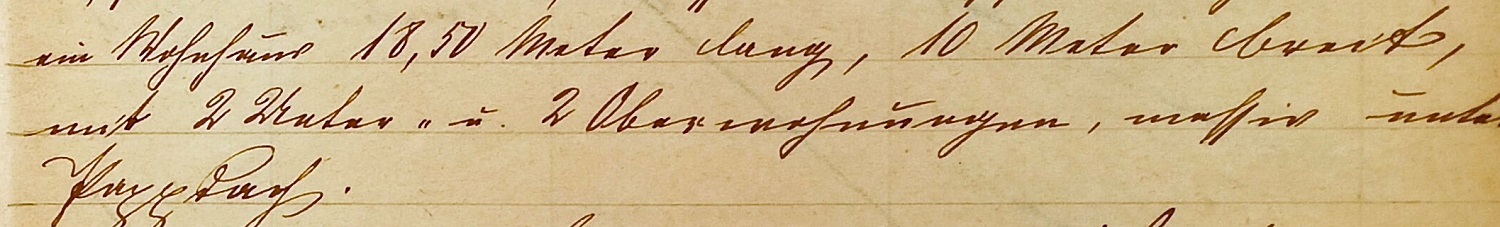 ein Wohnhaus 18,50 Meter lang, 10 Meter breit,
mit 2 Unter- u. 2 Oberwohnungen, massiv unter
Pappdach.